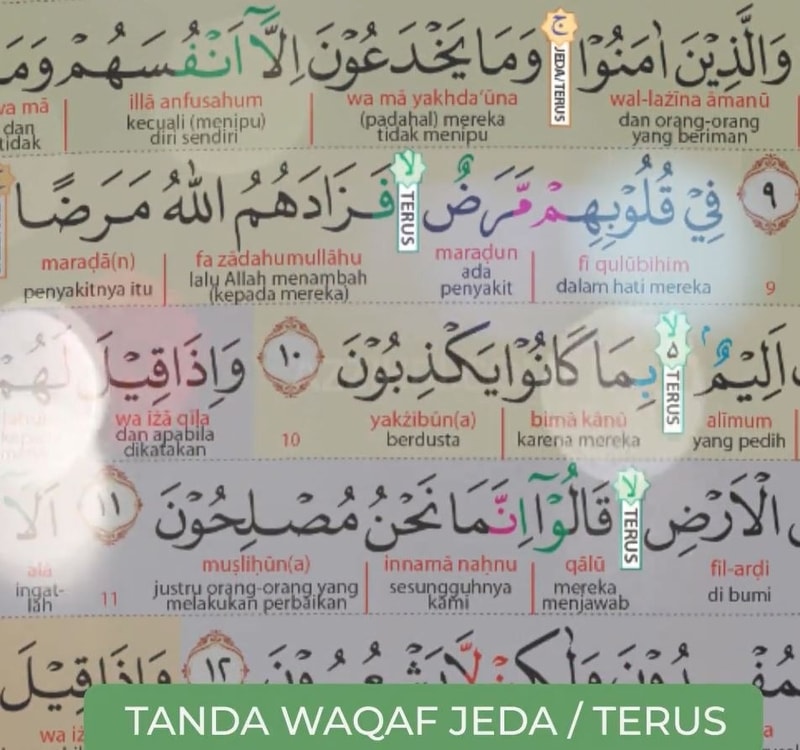 وَالَّذِيْنَ اٰمَنُوْا ۚ وَمَا يَخْدَعُوْنَ اِلَّآ اَنْفُسَهُمْ وَمَا
JEDA/TERUS
wal-lażīna āmanū wa mā yakhda‘ūna illā anfusahum wa mā
dan orang-orang yang beriman (padahal) mereka tidak menipu kecuali (menipu) diri sendiri dan tidak
٩ فِيْ قُلُوْبِهِمْ مَّرَضٌۙ فَزَادَهُمُ اللّٰهُ مَرَضًا
TERUS
fī qulūbihim maraḍun fa zādahumullāhu maraḍā(n)
9 dalam hati mereka ada penyakit lalu Allah menambah (kepada mereka) penyakitnya itu
اَلِيْمٌ ۙ ە بِمَا كَانُوْا يَكْذِبُوْنَ ١٠ وَاِذَا قِيْلَ لَهُمْ
TERUS
alīmum bimā kānū yakżibūn(a) wa iżā qīla
yang pedih karena mereka berdusta 10 dan apabila dikatakan
الْاَرْضِۙ قَالُوْٓا اِنَّمَا نَحْنُ مُصْلِحُوْنَ ١١ اَلَآ
TERUS
fil-arḍi qālū innamā naḥnu muṣliḥūn(a) alā
di bumi mereka menjawab sesungguhnya kami justru orang-orang yang melakukan perbaikan 11 ingat-lah
وَلٰكِنْ لَّا يَشْعُرُوْنَ ١٢ وَاِذَا قِيْلَ
TANDA WAQAF JEDA / TERUS